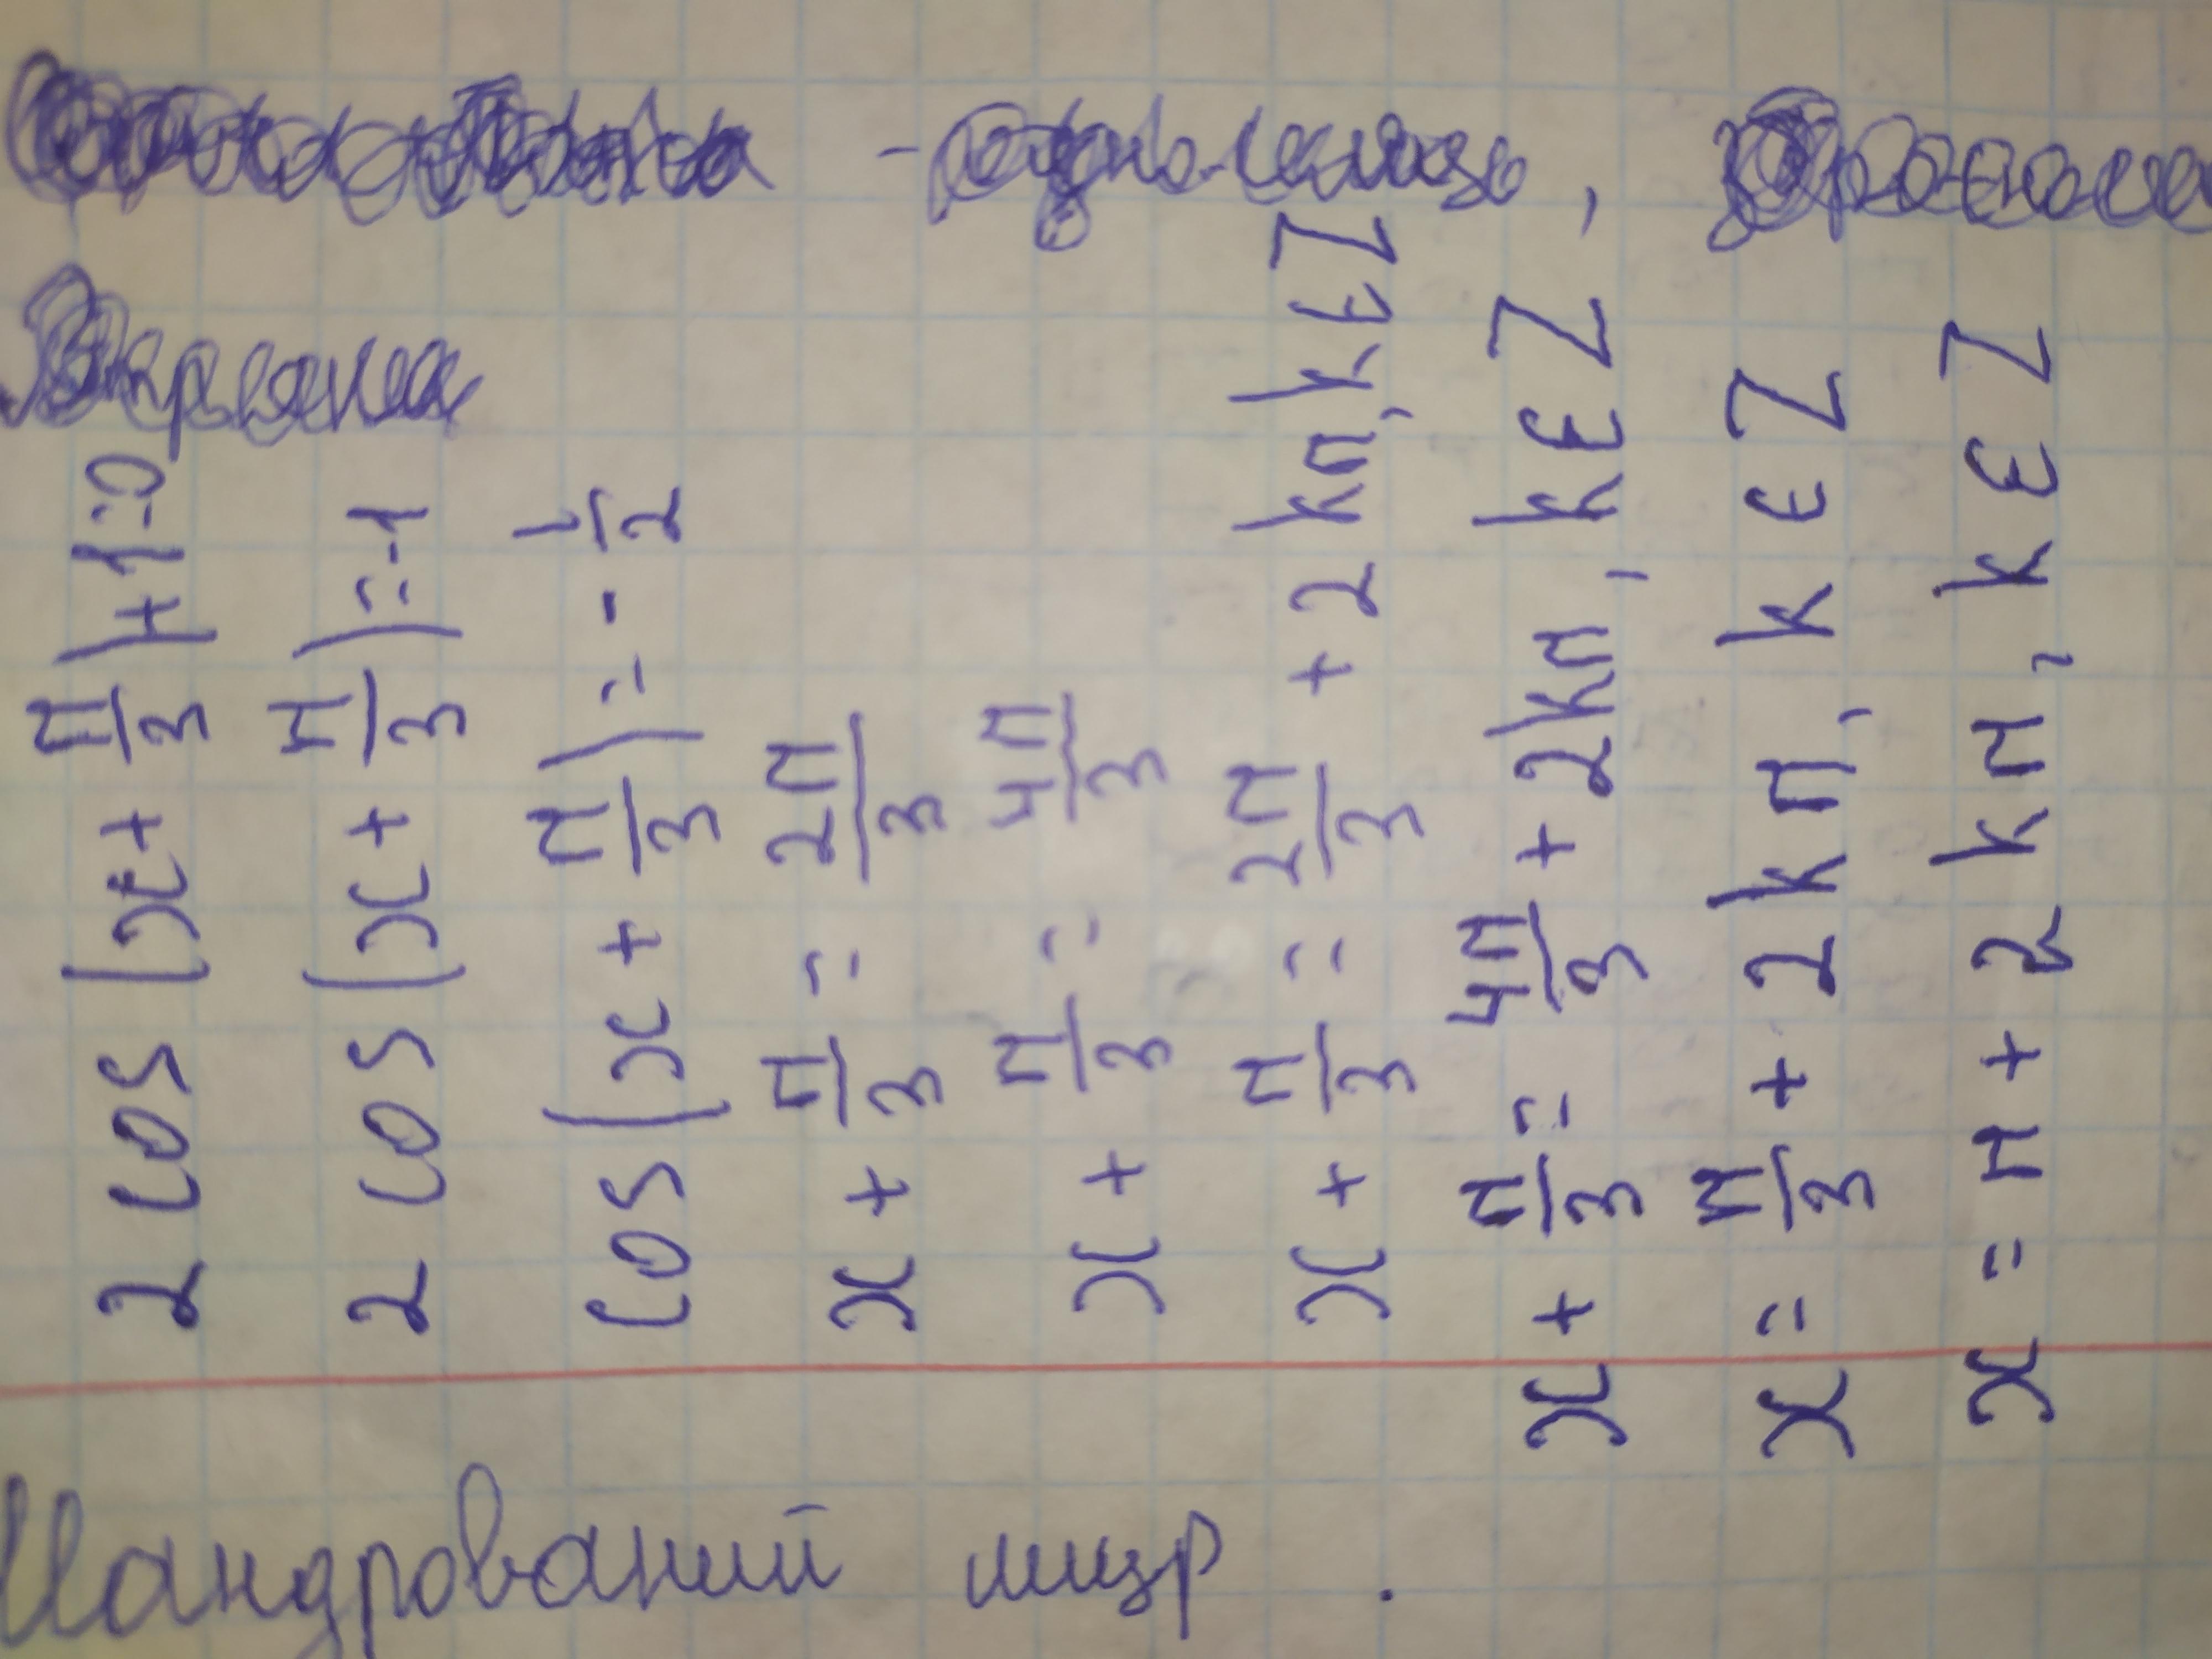 2 cos (x + π/3) + 1 = 0
2 cos (x + π/3) = -1
cos (x + π/3) = - 1/2
x + π/3 = 2π/3
x + π/3 = 4π/3
x + π/3 = 2π/3 + 2kπ, k ∈ Z
x + π/3 = 4π/3 + 2kπ, k ∈ Z
x = π/3 + 2kπ, k ∈ Z
x = π + 2kπ, k ∈ Z
Мандрований